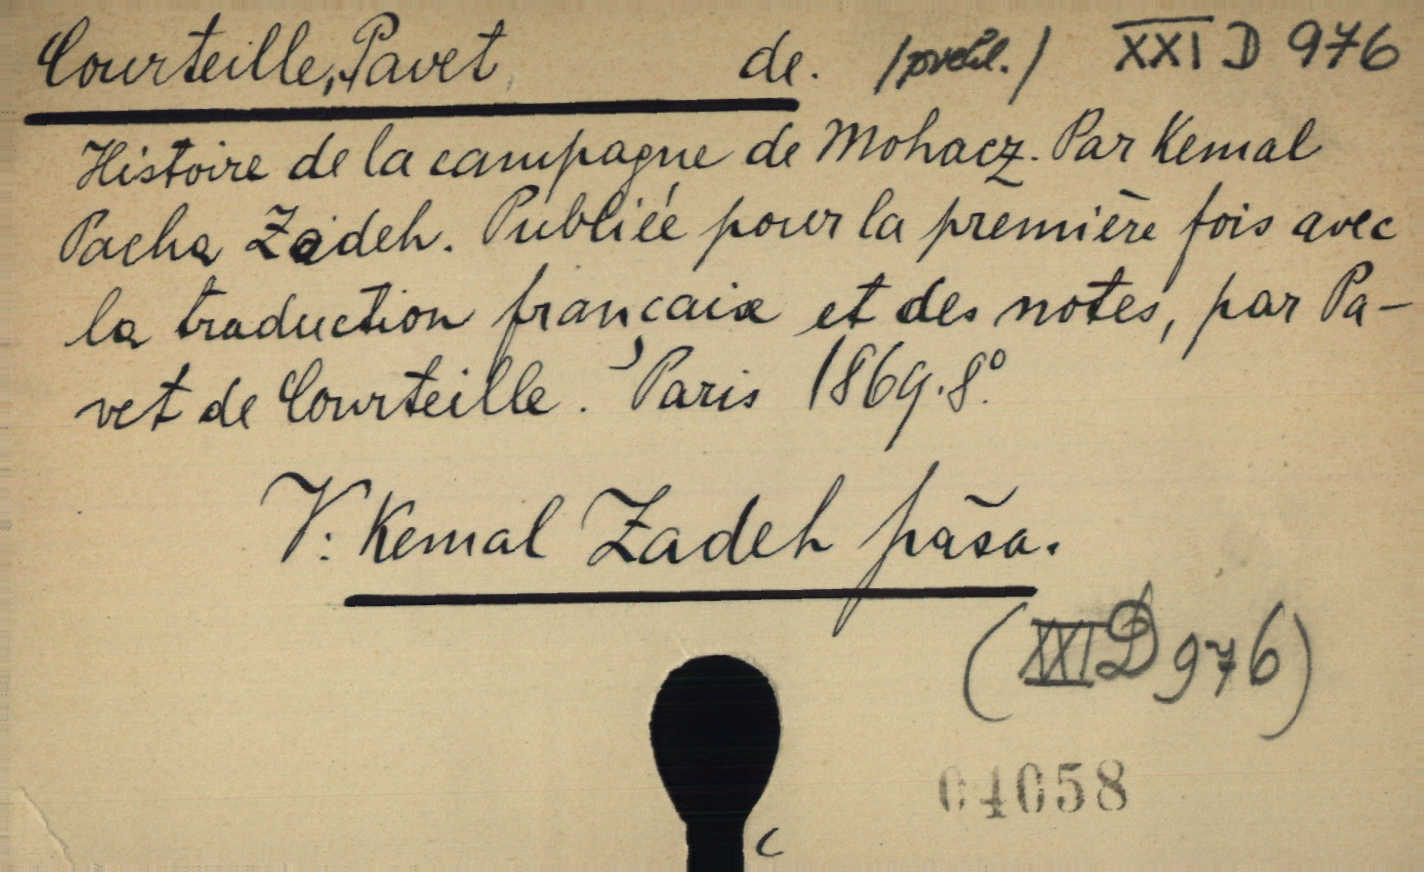 Courteille, Pavet de. /přel./ XXI D 976
Histoire de la campagne de Mohacz. Par Kemal
Pacha Zadeh. Publiée pour la première fois avec
la traduction française et des notes, par Pa-
vet de Courteille. Paris 1869. 8°.
V: Kemal Zadeh pāša.
(XXI D 976)
04058
c